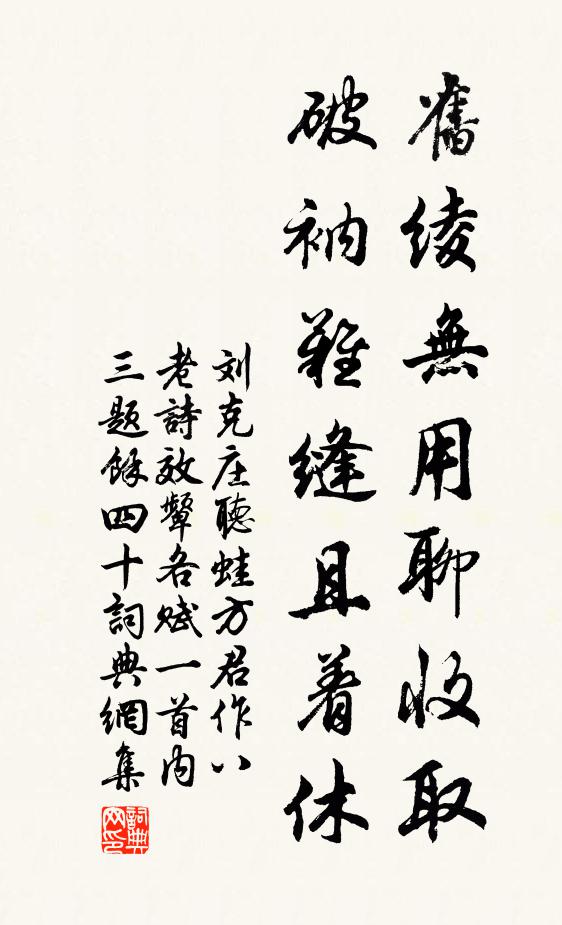 舊绫無用聊收取
破衲難缝且着休
刘克庄聽蛙方君作八
老詩效颦各赋一首内
三題餘四十詞典網集
詞典网印